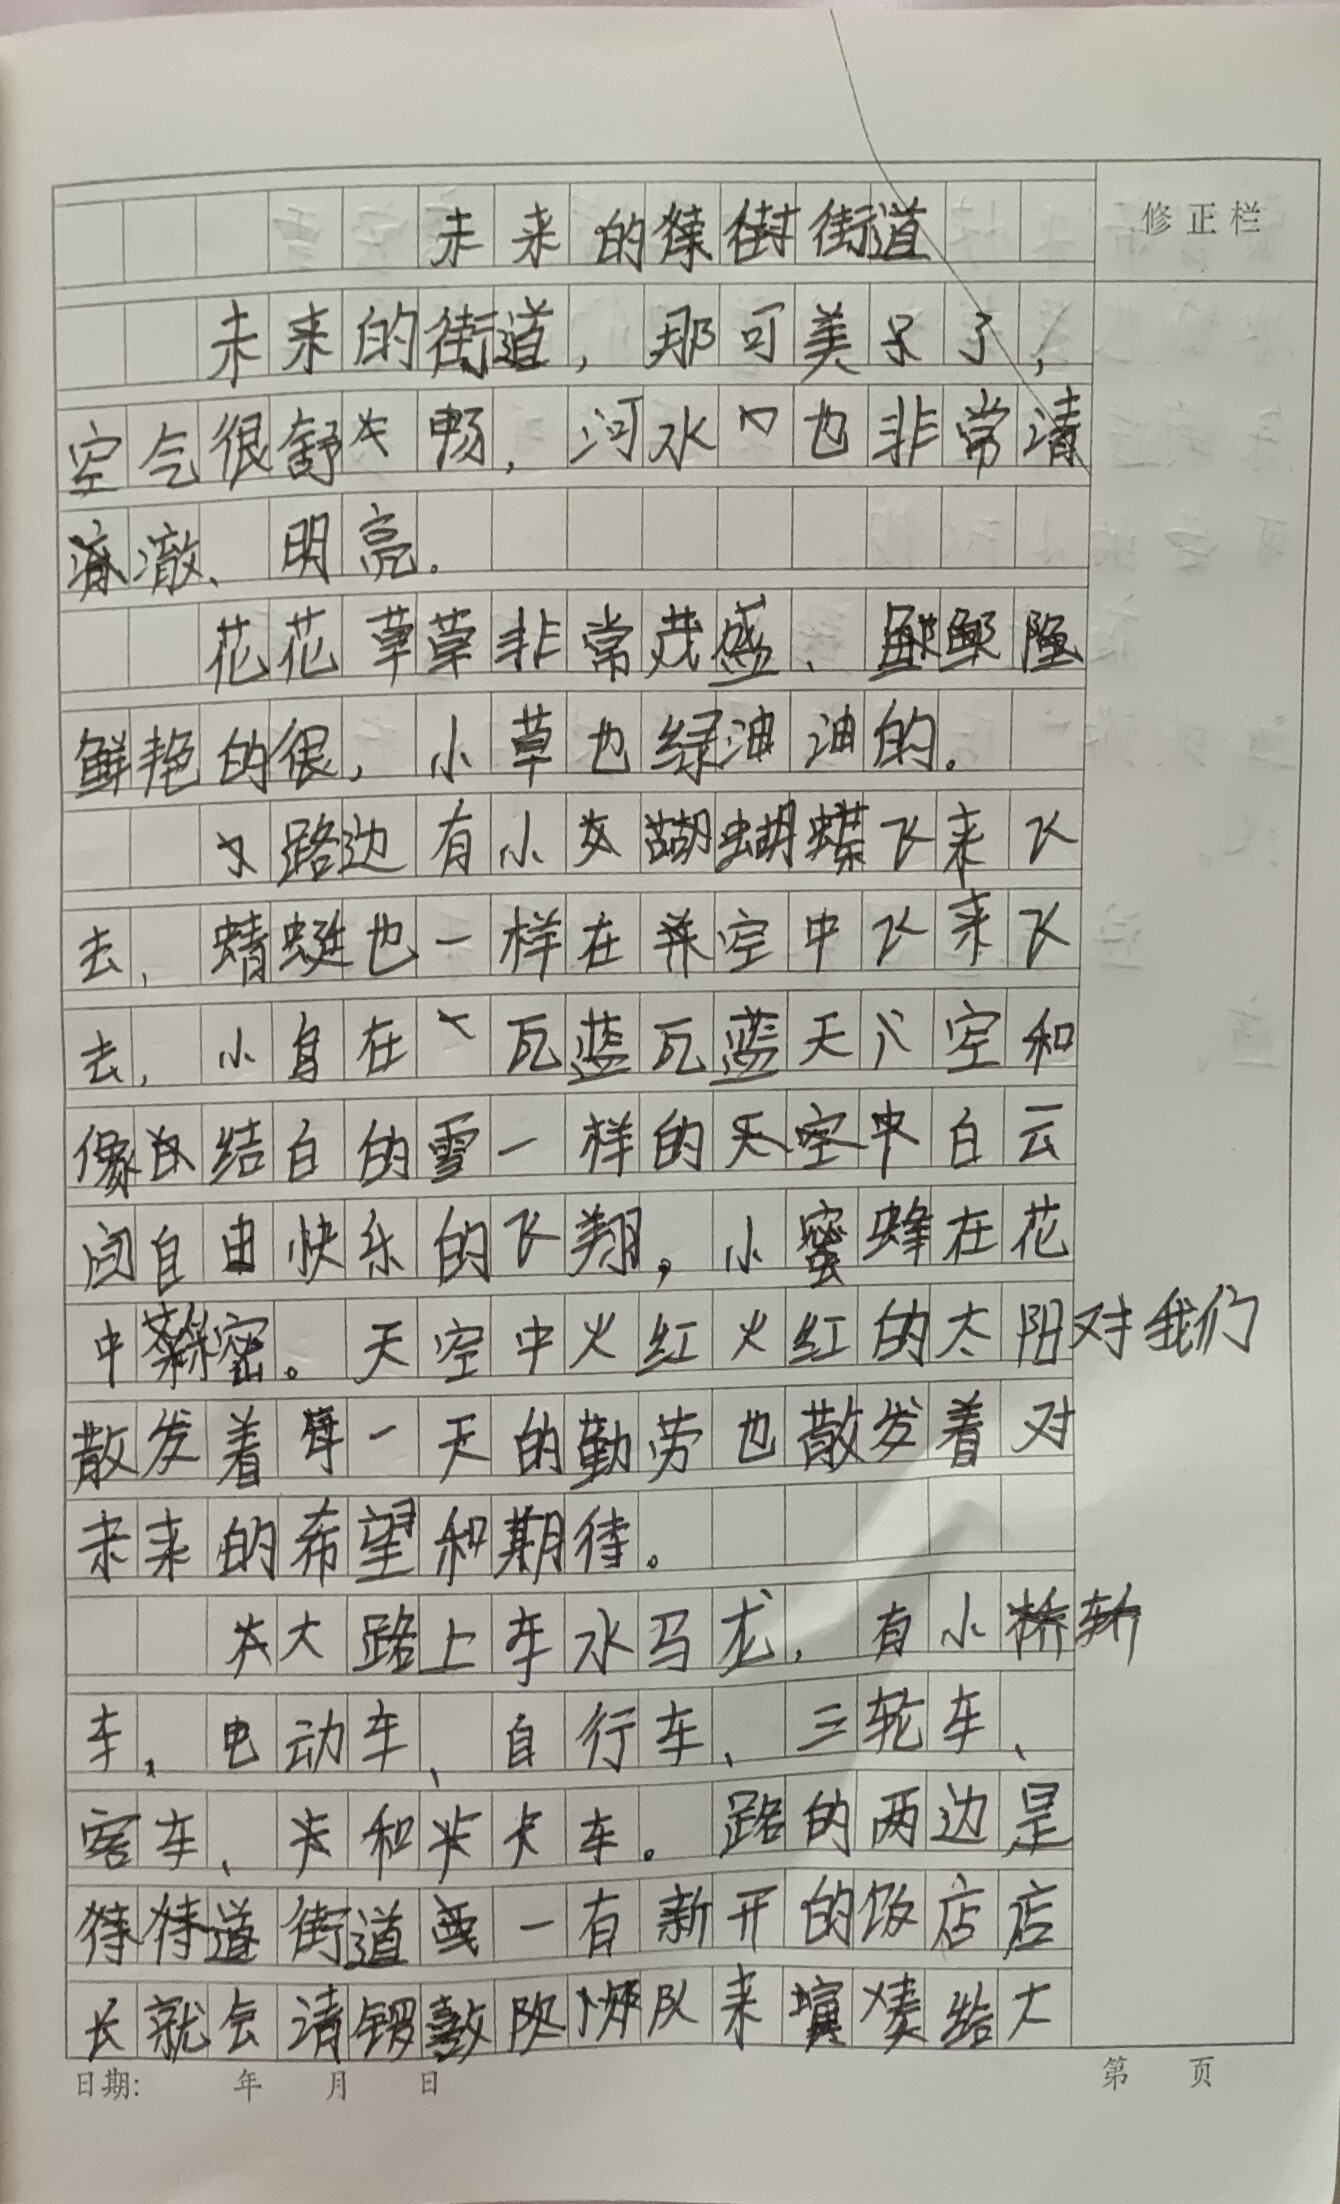 未来的街道
修正栏
未来的街道，那可美了，
空气很舒畅，河水也非常清
澈、明亮。
花花草草非常茂盛、
鲜艳的很，小草也绿油油的。
路边有小蝴蝶飞来飞
去，蜻蜓也一样在空中飞来飞
去，小鸟在瓦蓝瓦蓝天空和
像结白的雪一样的白云
间自由快乐的飞翔，小蜜蜂在花
中采密。天空中火红火红的太阳对我们
散发着一天的勤劳也散发着对
未来的希望和期待。
大路上车水马龙，有小轿
车，电动车、自行车、三轮车、
客车、和卡车。路的两边是
街道一有新开的饭店店
长就会请锣鼓队来演凑给大
日期: 年 月 日
第 页